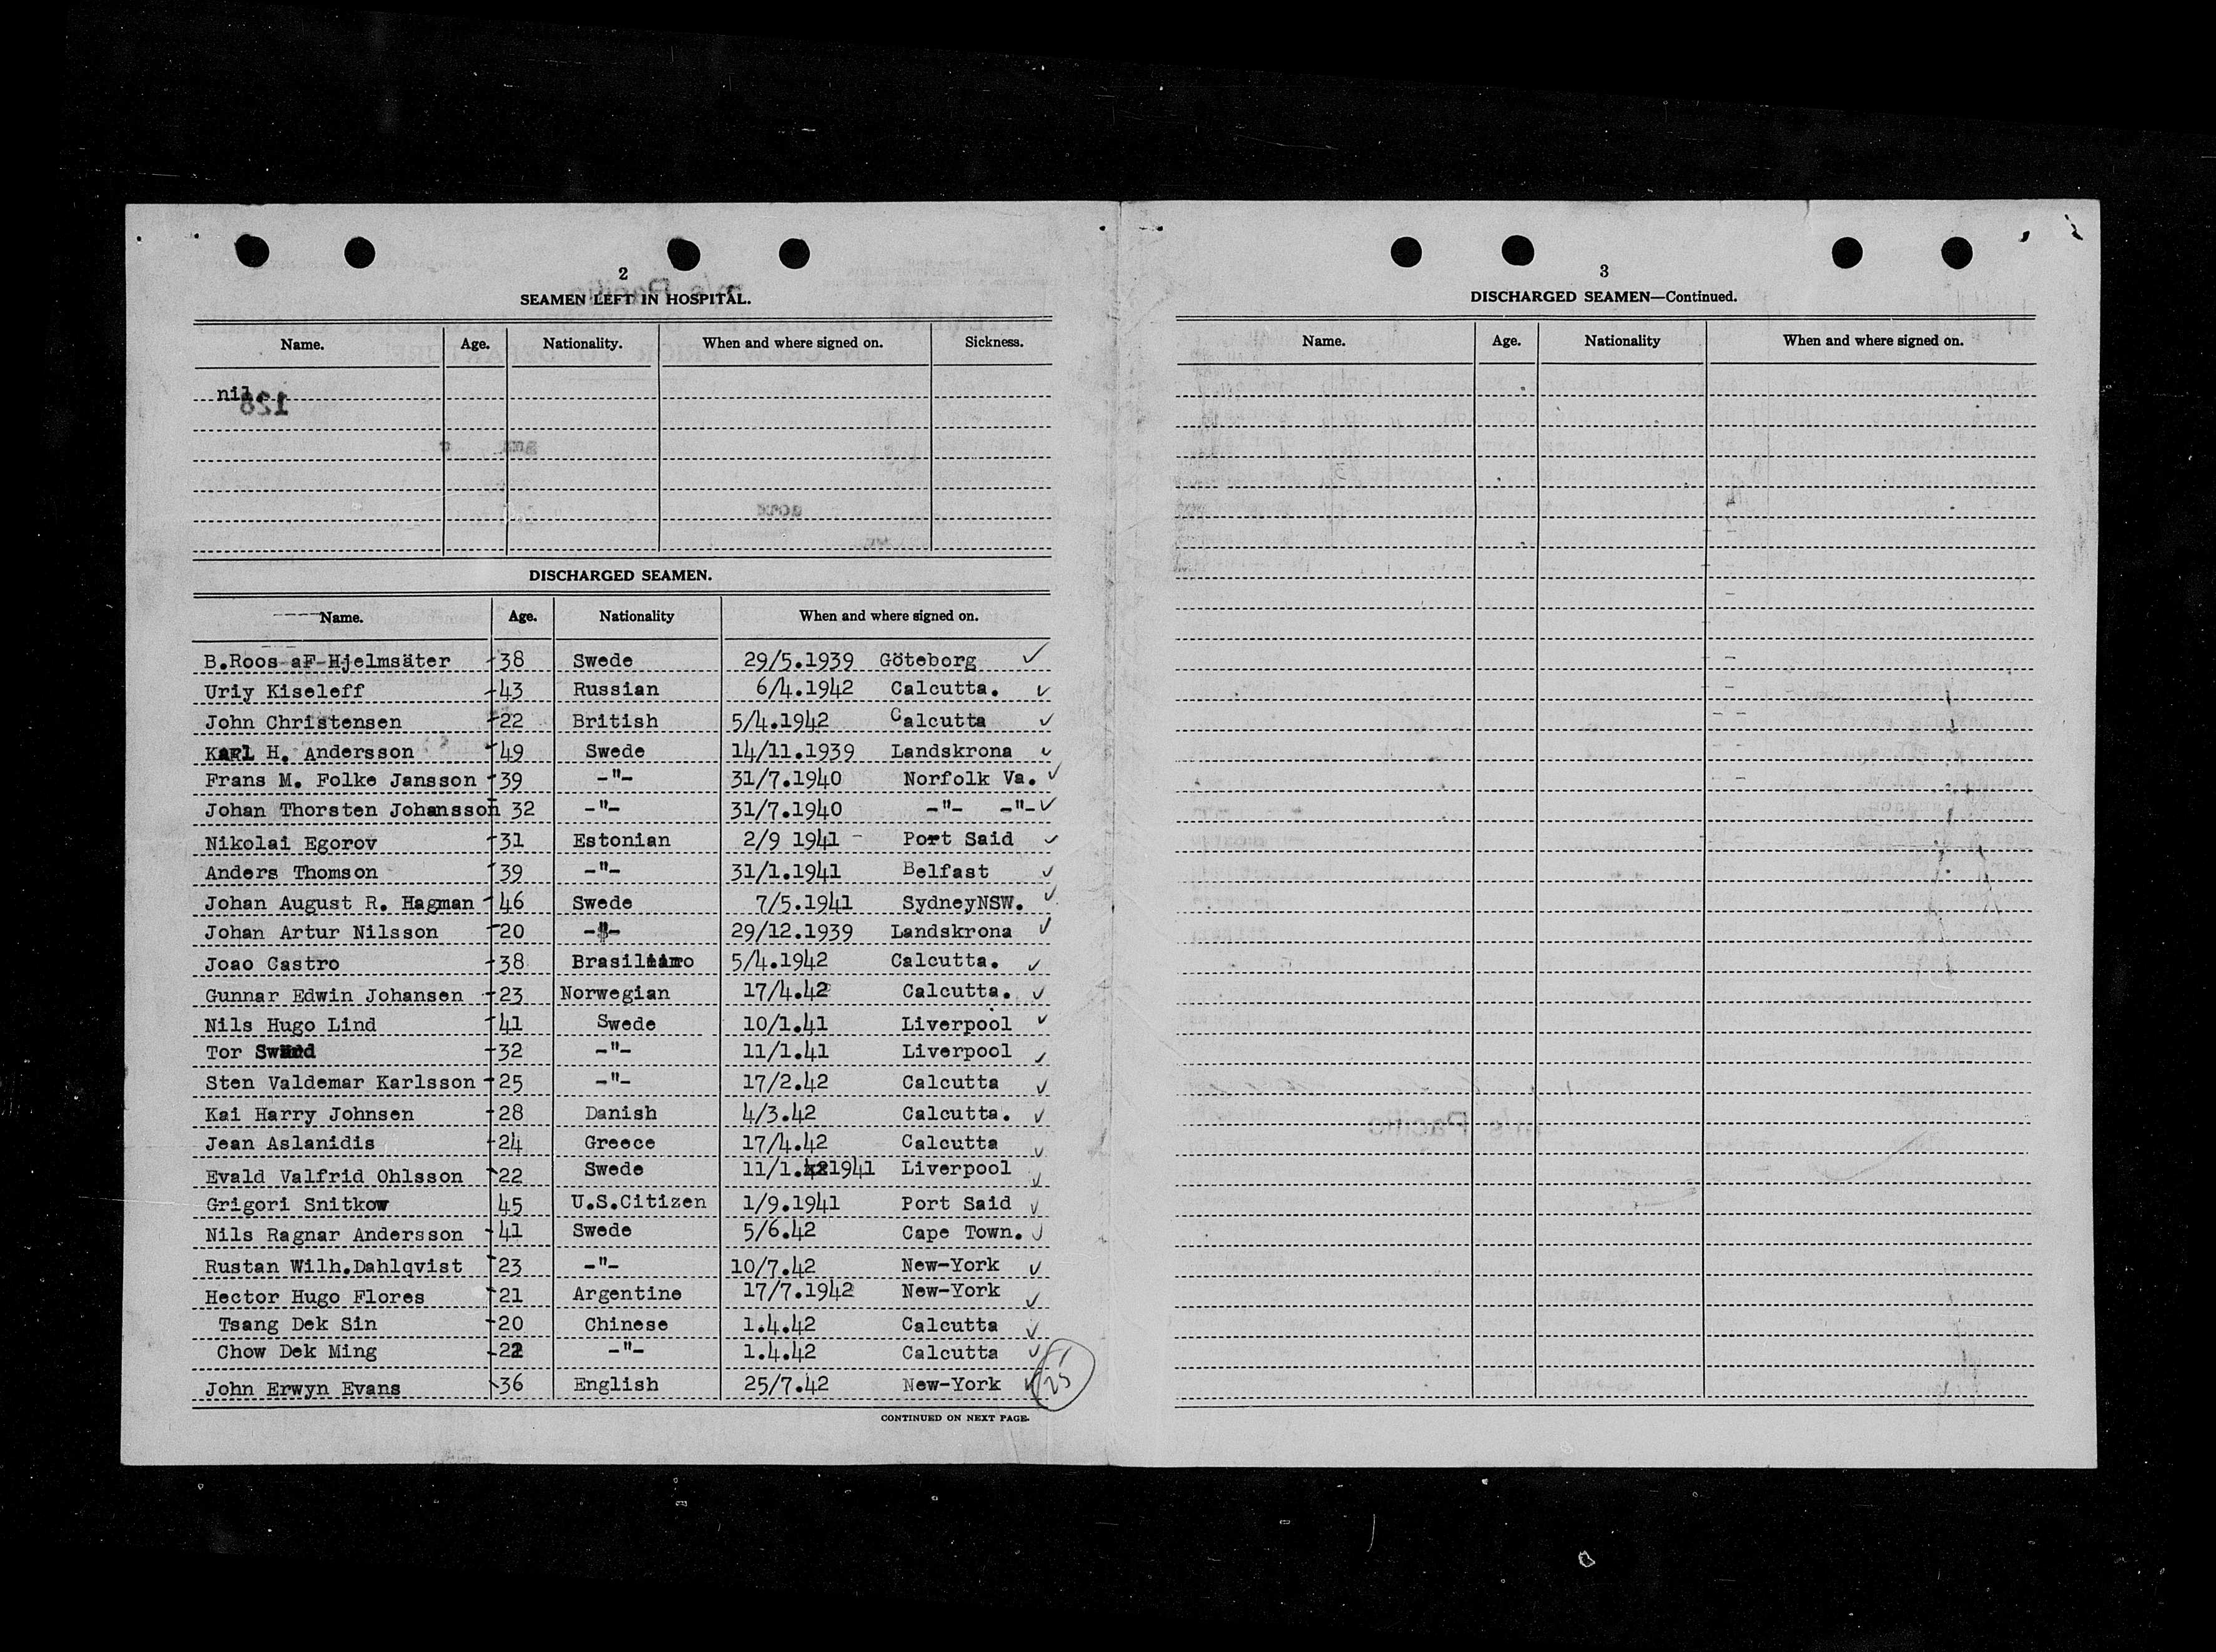 2
SEAMEN LEFT IN HOSPITAL.
Name. Age. Nationality. When and where signed on. Sickness.
nil.
DISCHARGED SEAMEN.
Name. Age. Nationality When and where signed on.
B.Roos aF Hjelmsäter 38 Swede 29/5.1939 Göteborg
Uriy Kiseleff 43 Russian 6/4.1942 Calcutta.
John Christensen 22 British 5/4.1942 Calcutta
Karl H. Andersson 49 Swede 14/11.1939 Landskrona
Frans M. Folke Jansson 39 -"- 31/7.1940 Norfolk Va.
Johan Thorsten Johansson 32 -"- 31/7.1940 -"- -"-
Nikolai Egorov 31 Estonian 2/9 1941 Port Said
Anders Thomson 39 -"- 31/1.1941 Belfast
Johan August R. Hagman 46 Swede 7/5.1941 SydneyNSW.
Johan Artur Nilsson 20 -"- 29/12.1939 Landskrona
Joao Castro 38 5/4.1942 Calcutta.
Gunnar Edwin Johansen 23 Norwegian 17/4.42 Calcutta.
Nils Hugo Lind 41 Swede 10/1.41 Liverpool
Tor 32 -"- 11/1.41 Liverpool
Sten Valdemar Karlsson 25 -"- 17/2.42 Calcutta
Kai Harry Johnsen 28 Danish 4/3.42 Calcutta.
Jean Aslanidis 24 Greece 17/4.42 Calcutta
Evald Valfrid Ohlsson 22 Swede 11/1.1941 Liverpool
Grigori Snitkow 45 U.S.Citizen 1/9.1941 Port Said
Nils Ragnar Andersson 41 Swede 5/6.42 Cape Town.
Rustan Wilh.Dahlqvist 23 -"- 10/7.42 New-York
Hector Hugo Flores 21 Argentine 17/7.1942 New-York
Tsang Dek Sin 20 Chinese 1.4.42 Calcutta
Chow Dek Ming -"- 1.4.42 Calcutta
John Erwyn Evans 36 English 25/7.42 New-York 25
CONTINUED ON NEXT PAGE.
3
DISCHARGED SEAMEN—Continued.
Name. Age. Nationality When and where signed on.